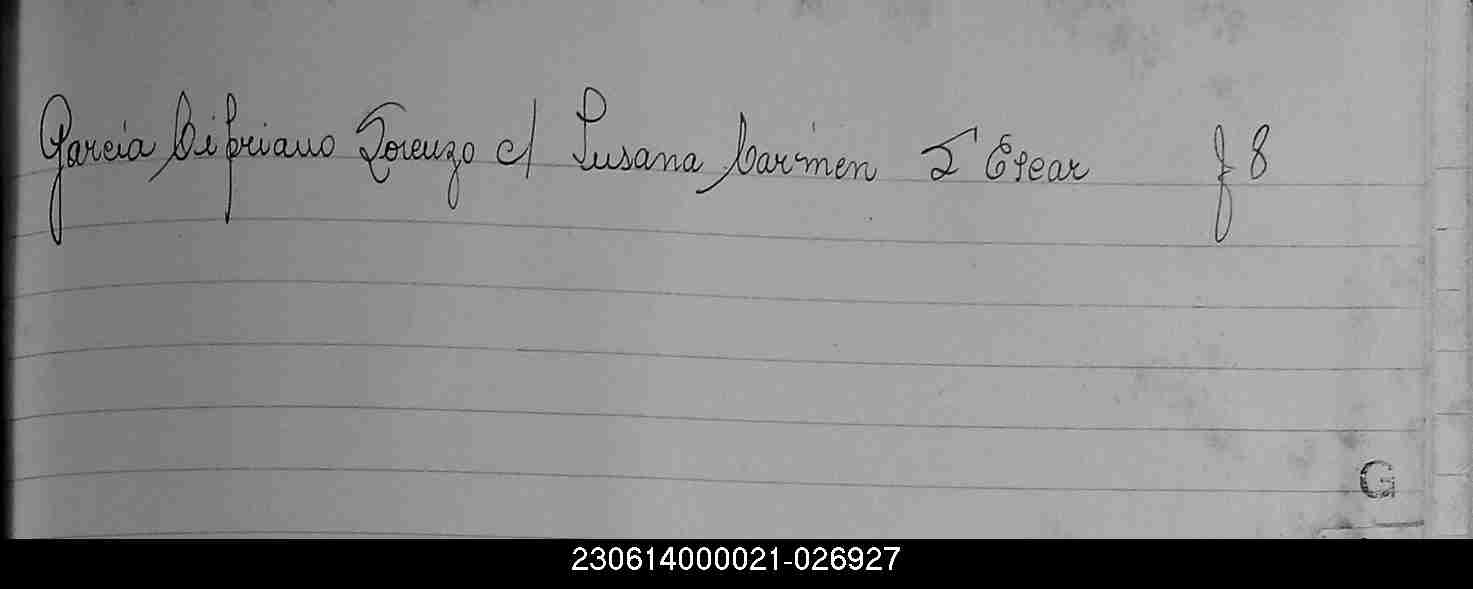 García Cipriano Lorenzo c/ Susana Carmen I' Escar f 8
G
230614000021-026927